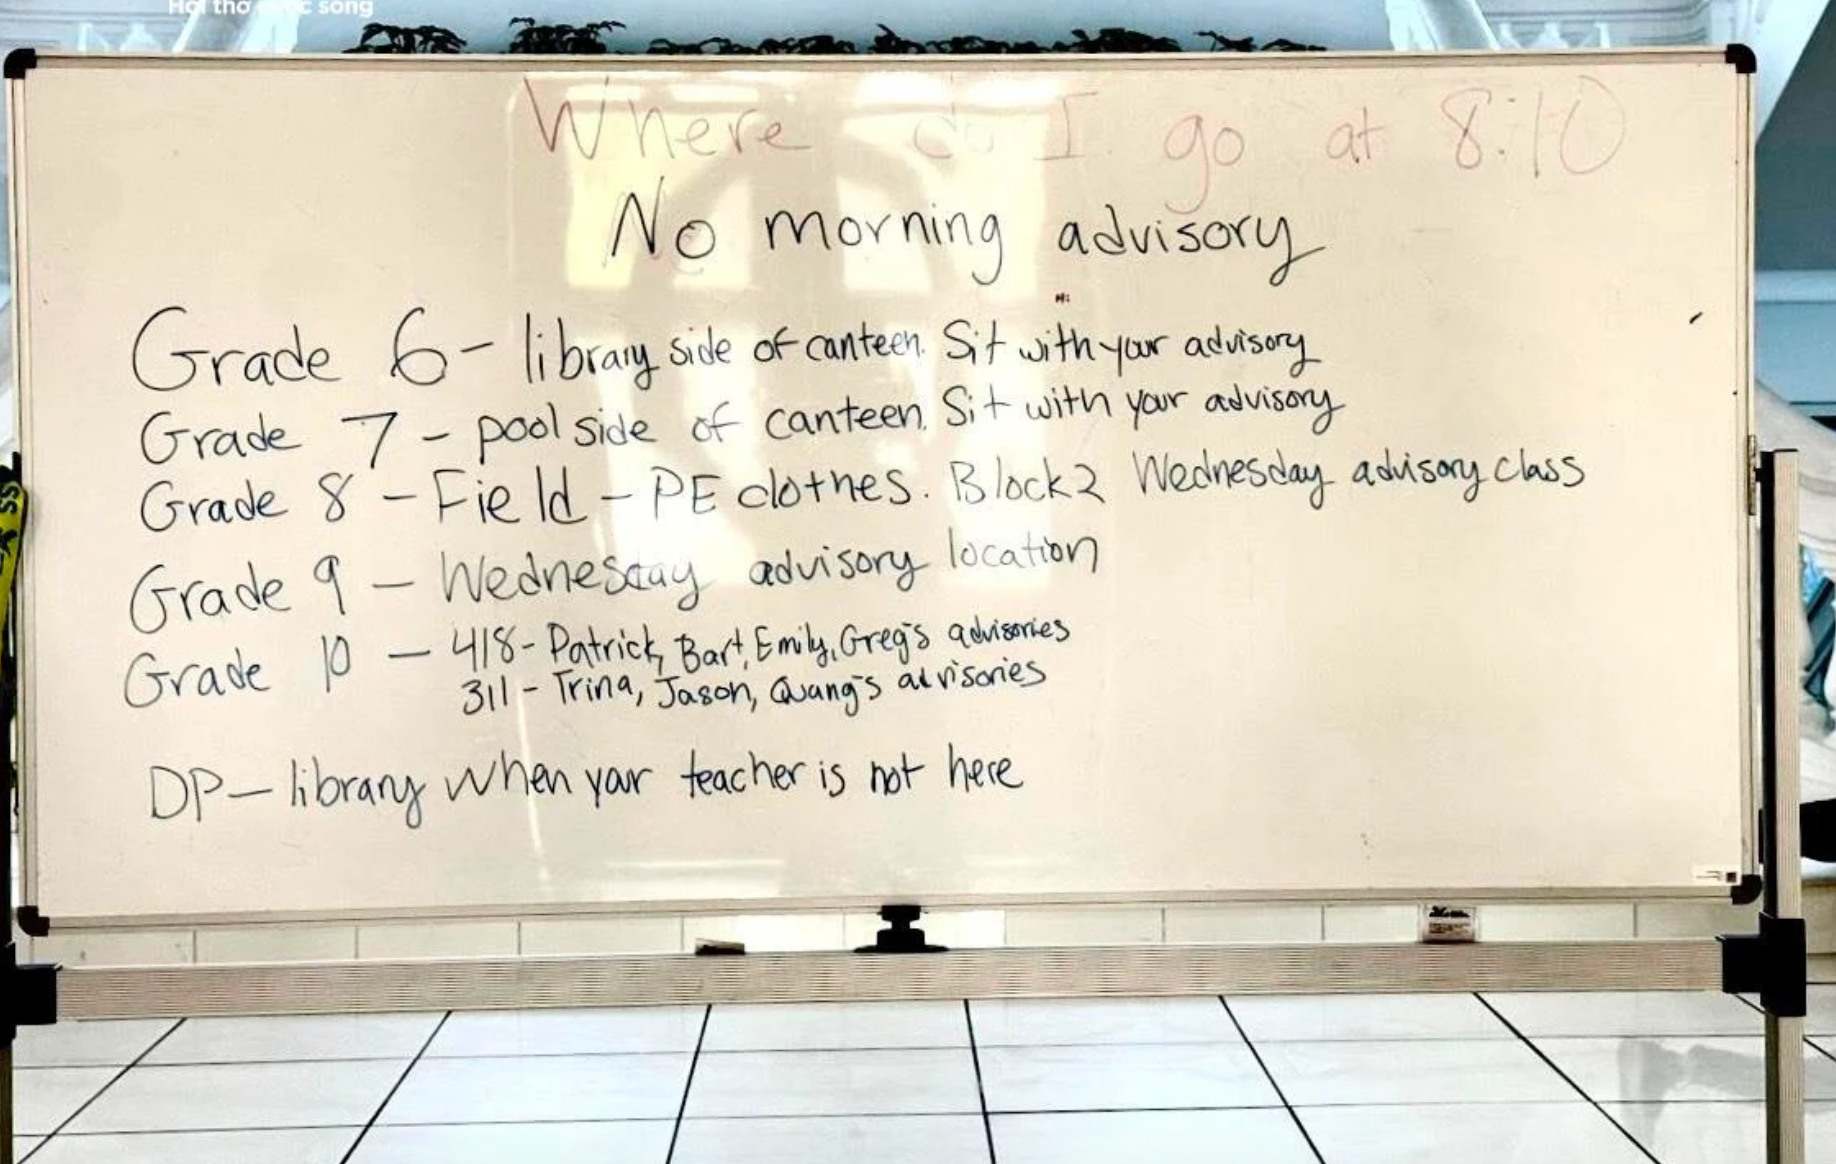 Hơi thở cuộc sống
Where do I go at 8:10
No morning advisory
Grade 6 - library side of canteen. Sit with your advisory
Grade 7 - pool side of canteen. Sit with your advisory
Grade 8 - Field - PE clothes. Block 2 Wednesday advisory class
Grade 9 - Wednesday advisory location
Grade 10 - 418 - Patrick, Bart, Emily, Greg's advisories
311 - Trina, Jason, Quang's advisories
DP - library when your teacher is not here